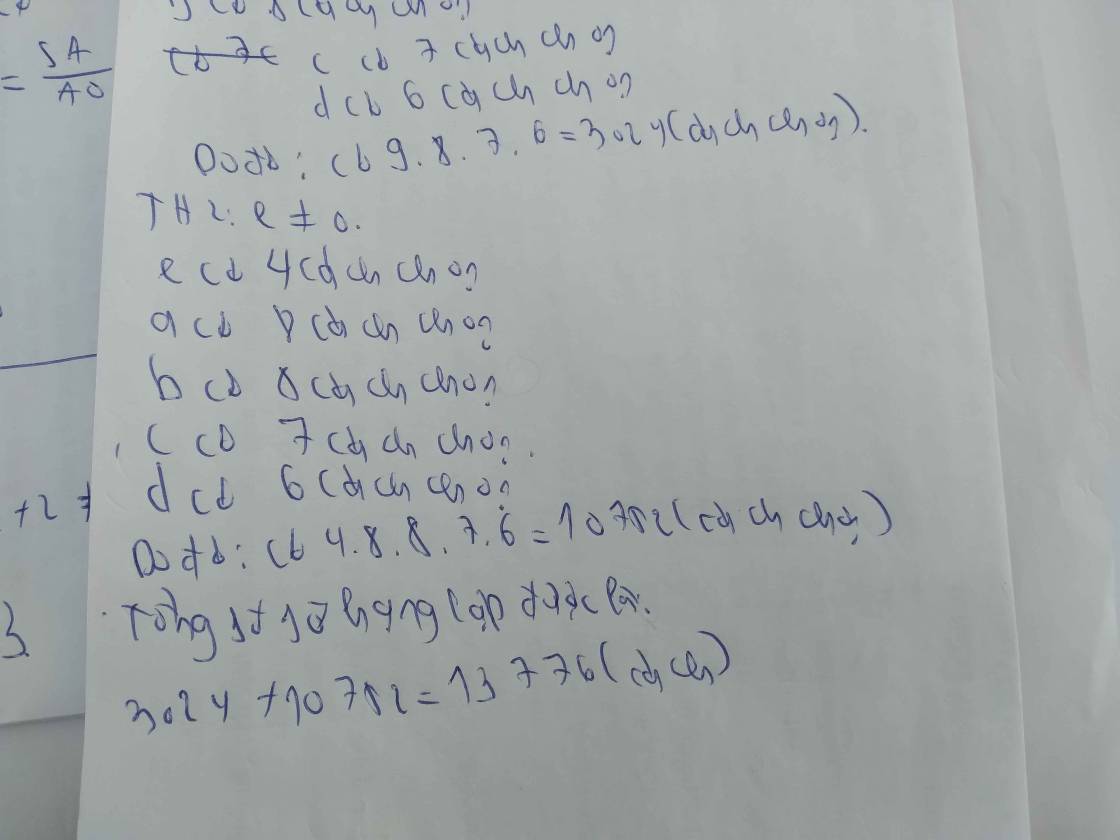 b có 8 cách chọn
= SA/AO
c có 7 cách chọn
d có 6 cách chọn
Do đó: có 9.8.7.6=3024 (cách chọn).
TH2: e ≠ 0.
e có 4 cách chọn
a có 8 cách chọn
b có 8 cách chọn
c có 7 cách chọn.
d có 6 cách chọn
+2 ≠
Do đó: có 4.8.8.7.6=10752 (cách chọn)
Tổng số số hạng lập được là.
3.
3024 +10752=13776 (cách)